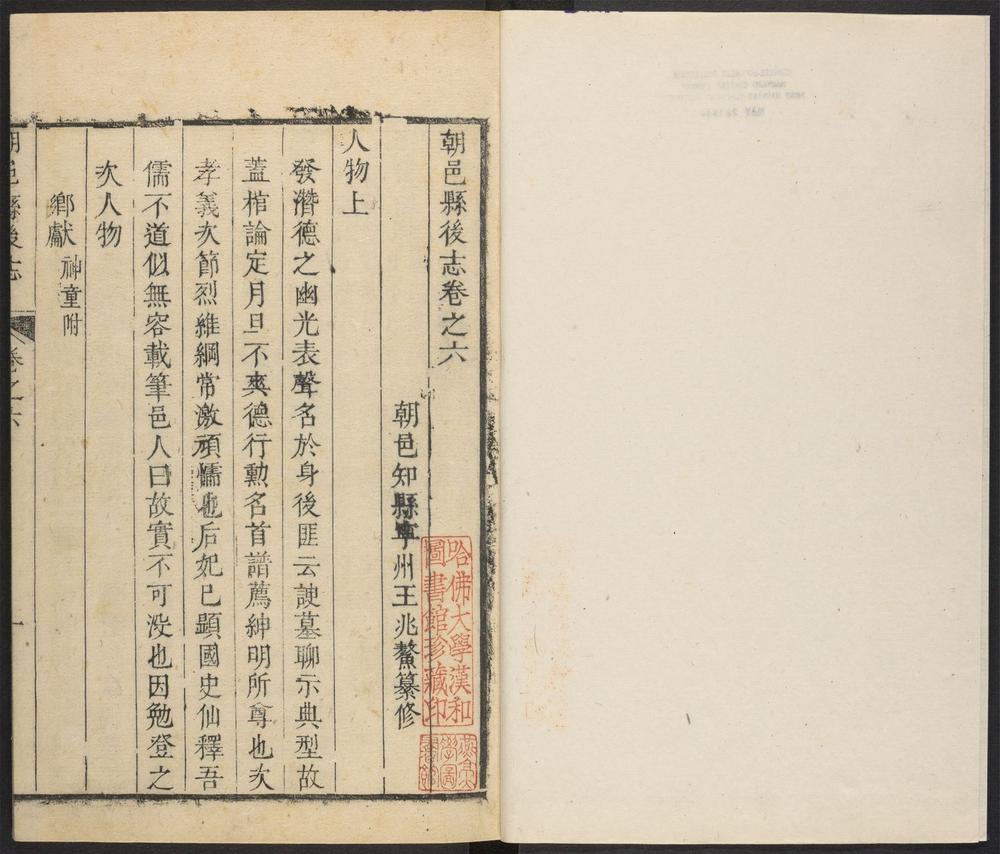 朝邑縣後志卷之六
朝邑知縣寧州王兆鰲纂修
人物上
發潛德之幽光表聲名於身後匪云諛墓聊示典型故
蓋棺論定月旦不爽德行勳名首譜薦紳明所尊也次
孝義次節烈維綱常激頑懦也后妃已顯國史仙釋吾
儒不道似無容載筆邑人曰故實不可没也因勉登之
次人物
鄉獻 神童附
朝邑縣後志 卷之六 一
哈佛大學漢和圖書館珍藏印